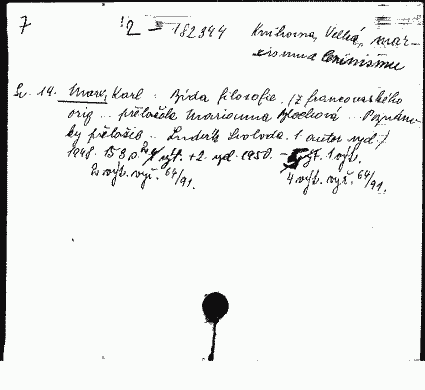 7 2 - 182944 Knihovna, Velká, mar-
xismu leninismu
Sv. 14. Marx, Karl: Bída filosofie. /Z francouzského
orig... přeložila Marianna Blochová... Poznám-
ky přeložil.. Ludvík Svoboda. 1 autor. vyd./
1948. 153 s. 2 výt. + 2. vyd. 1950. - výt. 1 výt.
2 výt. vyř. 64/91. 4 výt. vyř. 64/91.